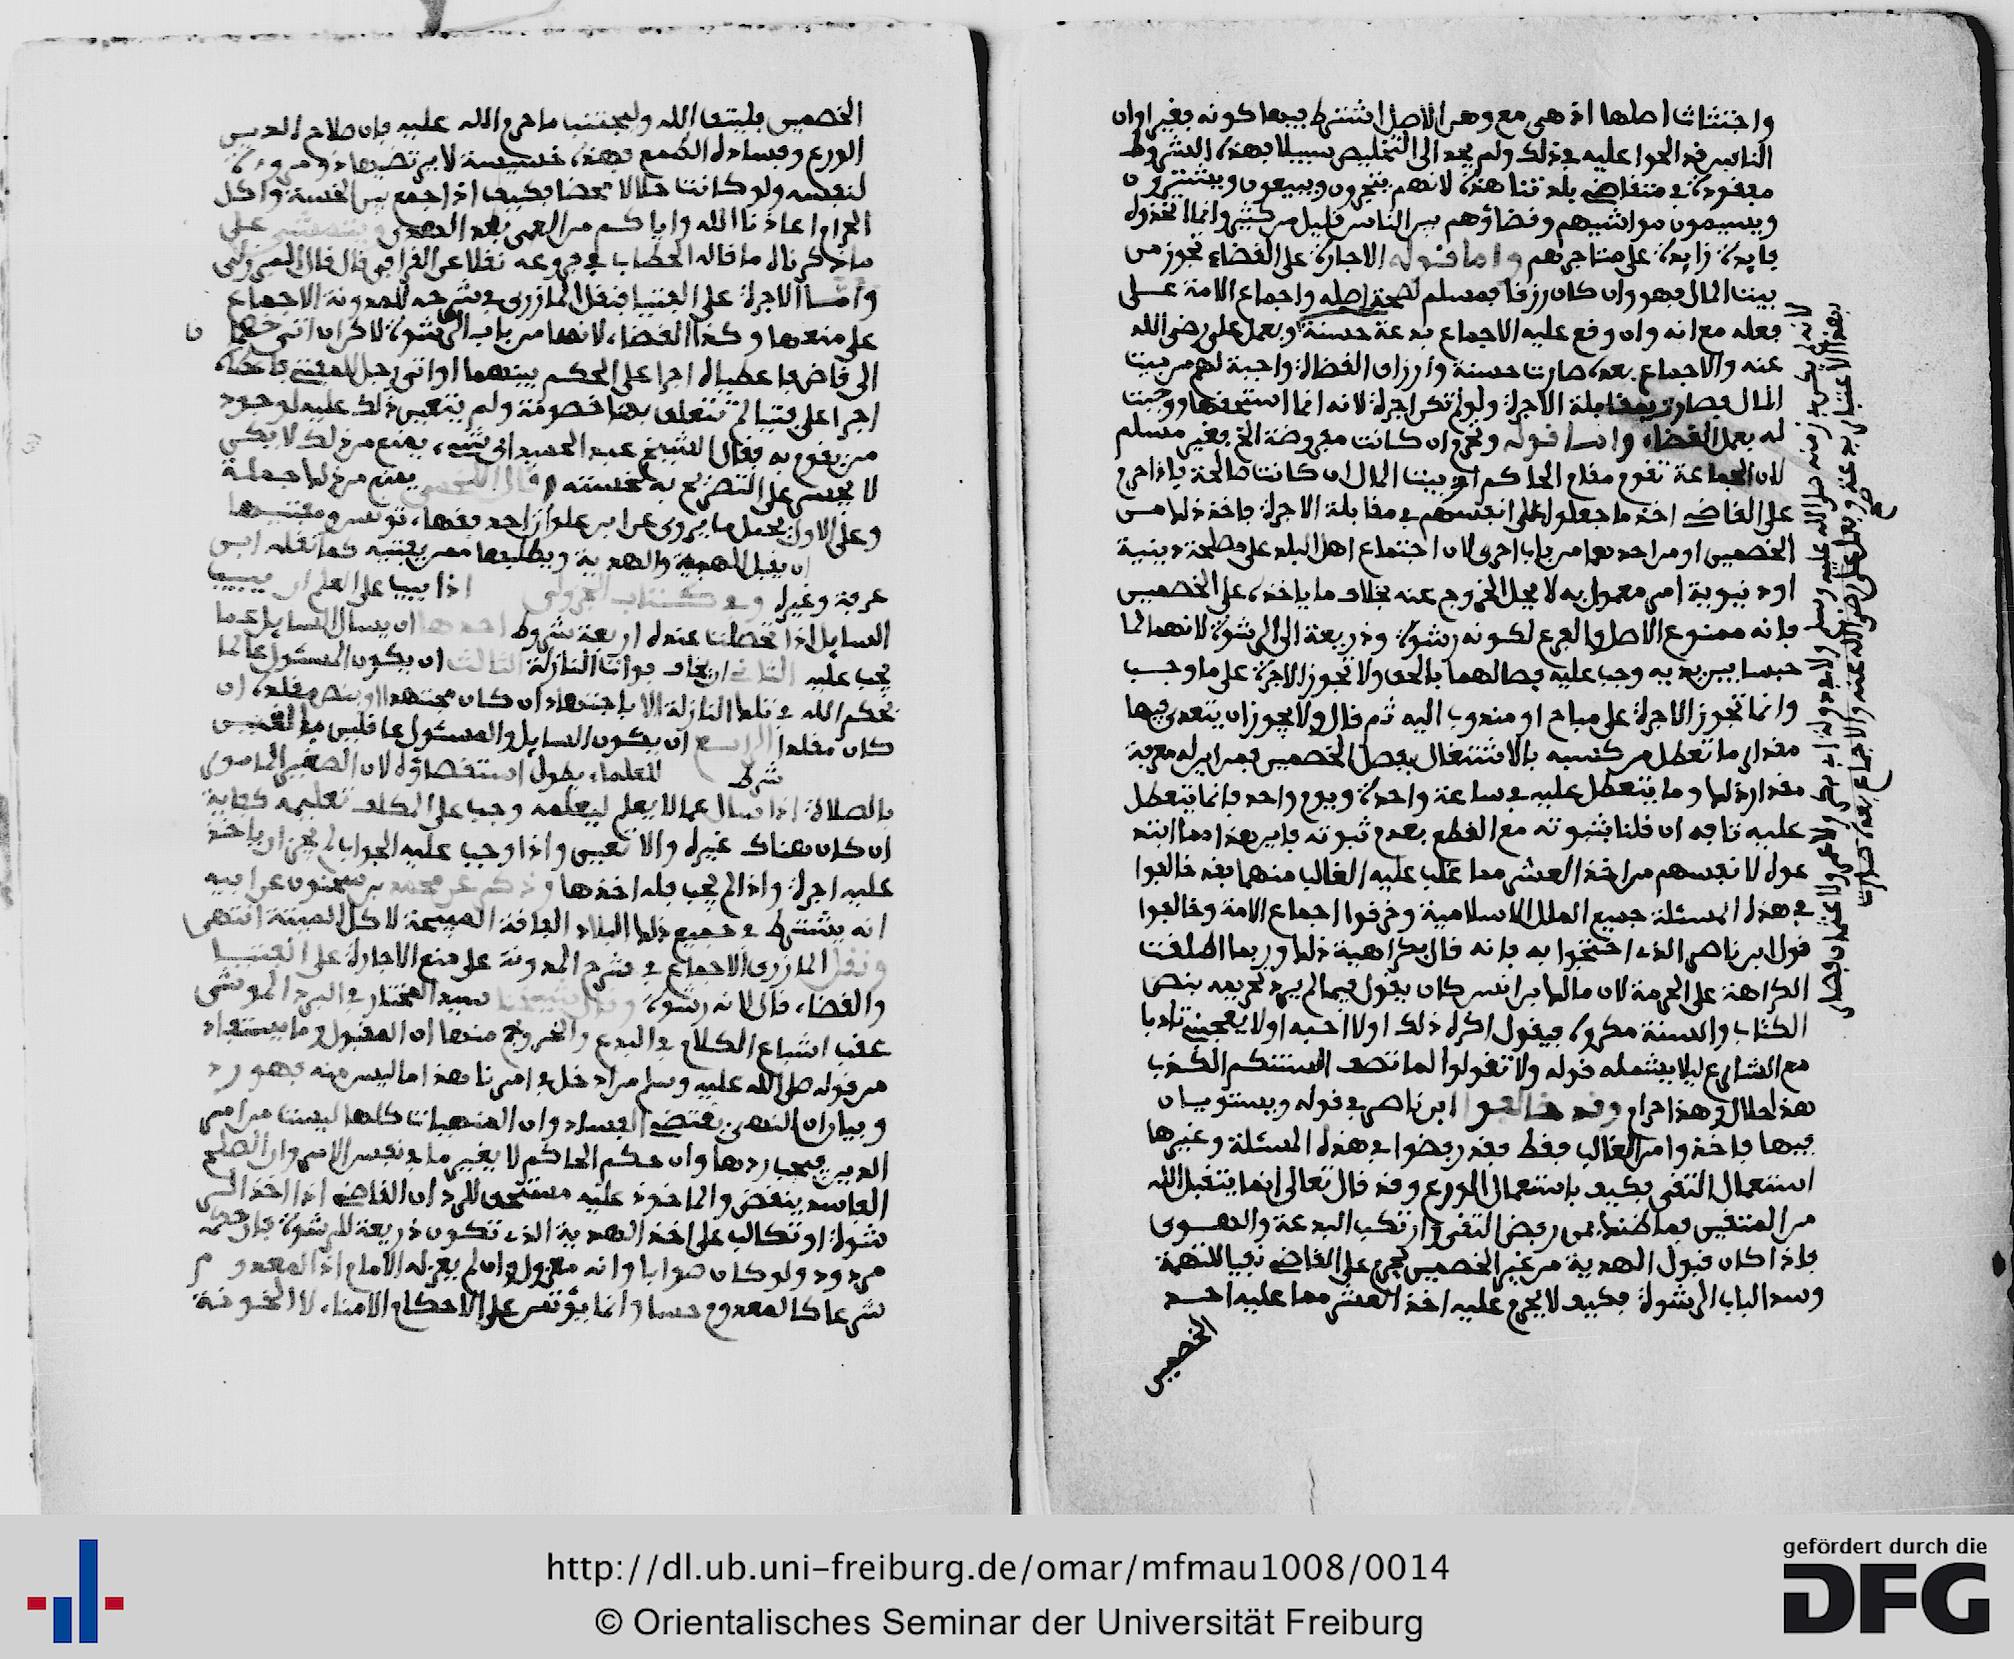 واجتثاث اصلها اذ هي مع وهن الاصل اشترط فيها كونه بغير اوان
الناس قد الحوا عليه في ذلك ولم يجد الى التخليص سبيلا بهذه الشروط
مفقودة في متقاضي بلدتنا هذه لانهم يتجرون ويبيعون ويشترون
ويسيمون مواشيهم وقضاؤهم بين الناس قليل من كثير وانما اتخذوه
فايدة زايدة على متاجرهم واما قوله الاجارة على القضاء تجوز من
بيت المال فهو وان كان رزقا فمسلم لصحة اصله واجماع الامة على
فعله مع انه وان وقع عليه الاجماع بدعة حسنة وبعمل علي رضي الله
عنه والاجماع بعده صارت حسنة وارزاق القضاة واجبة لهم من بيت
المال فصارت بمقابلة الاجرة ولو لم تكن اجرة لانه انما استحقها ووجبت
له بعمل القضاء واما قوله وتجري وان كانت مفروضة الخ فغير مسلم
لان الجماعة تقوم مقام الحاكم او بيت المال ان كانت صالحة فاذا حرم
على القاضي اخذ ما جعلوا على انفسهم في مقابلة الاجرة فاخذ ذلك من
الخصمين او من احدهما من باب احرى لان اجتماع اهل البلد على مصلحة دينية
او دنيوية امر معمول به لا يحل الخروج عنه بخلاف ما ياخذه على الخصمين
فانه ممنوع الاصل والفرع لكونه رشوة وذريعة الى الرشوة لانهما لما
حبسا بين يديه وجب عليه فصالهما بالحق ولا تجوز الاجرة على ما وجب
وانما تجوز الاجرة على مباح او مندوب اليه ثم قال ولا يجوز ان يتعدى فيها
مقدار ما تعطل من كسبه بالاشتغال بفصل الخصمين فمن اين له معرفة
مقدار ذلك وما يتعطل عليه في ساعة واحدة ويوم واحد فانما يتعطل
عليه تافه ان قلنا بثبوته مع القطع بعدم ثبوته فاين هذا مما ابتد
عوا لانفسهم من اخذ العشر مما غلب عليه الغالب منهما فقد خالفوا
في هذه المسئلة جميع الملل الاسلامية وخرقوا اجماع الامة وخالفوا
قول ابن ناصر الذي احتجوا به فانه قال بكراهية ذلك وربما اطلقت
الكراهة على الحرمة لان مالك بن انس كان يقول فيما لم يرد تحريمه بنص
الكتاب والسنة مكروه فيقول اكره ذلك او لا احبه او لا يعجبني تادبا
مع الشارع ليلا يشمله قوله ولا تقولوا لما تصف السنتكم الكذب
هذا حلال وهذا حرام وقد خالفوا ابن ناصر في قوله ويستويان
فيها فاخذوا من الغالب فقط فقد رفضوا في هذه المسئلة وغيرها
استعمال التقى فكيف باستعمال الورع وقد قال تعالى انما يتقبل الله
من المتقين فما ظنك بمن رفض التقى وارتكب البدعة والهوى
فاذا كان قبول الهدية من غير الخصمين يحرم على القاضي نفيا للتهمة
وسد الباب الرشوة فكيف لا يحرم عليه اخذ العشر مما عليه احد
الخصمين
الخصمين فليتق الله وليجتنب ما حرم الله عليه فان صلاح الدين
الورع وفساده الطمع فهذه خسيسة لا يرتضيها ذو مروءة
لنفسه ولو كانت حلالا محضا فكيف اذا جمع بين الخسة واكل
الحرام اعاذنا الله واياكم من العمى بعد الهدى على
ما ذكرناه ما قاله الحطاب في فروعه نقلا عن القرافي قال قال
واما الاجرة على الفتيا فنقل المازري في شرحه للمدونة الاجماع
على منعها وكذا القضاء لانها من باب الرشوة لاكن ان اتى خصمان
الى قاض فاعطياه اجرا على الحكم بينهما او اتى رجل للمفتي فاعطاه
اجرا على فتيا لم تتعلق بها خصومة ولم يتعين ذلك عليه لوجود
من يقوم به فقال الشيخ عبد الحميد اي شيء يمنع من ذلك لاكني
لا يجسر على التصريح به لخسته وقال اللخمي يمنع من ذلك جملة
وعلى الاول يحمل ما يروى عن ابن علوان احد فقهاء تونس ومفتيها
ان يقبل الهدية ويطلبها ممن يفتيه كما نقله ابن
عرفة وغيره وفي كتاب الجزولي اذا يجب على العالم ان يجيب
السايل اذا تحصلت عنده اربعة شروط احدها ان يسال السايل عما
يجب عليه الثاني ان يخاف فوات النازلة الثالث ان يكون المسئول عالما
بحكم الله في تلك النازلة الا باجتهاد ان كان مجتهدا او بنص مقلده ان
كان مقلدا الرابع ان يكون السايل والمسئول عاقلين
شرط للعلماء يطول استقصاؤه لان الصغير المامور
بالصلاة اذا سال عما لا يعلم ليعلمه وجب على المكلف تعليمه كفاية
ان كان هناك غيره والا تعين واذا وجب عليه الجواب لم يجز ان ياخذ
عليه اجرة واذا لم يجب فله اخذها وذكر عن محمد بن سحنون عن ابيه
انه يشترط في جميع ذلك البلاد الفاقة المبيحة لاكل الميتة انتهى
ونقل المازري الاجماع في شرح المدونة على منع الاجارة على الفتيا
والقضاء قال لانه رشوة وقال شيخنا سيد المختار في البرد الموشى
عقب اشباع الكلام في البدع والخروج منها ان المقبول ما يستفاد
من قوله صلى الله عليه وسلم من ادخل في امرنا هذا ما ليس منه فهو رد
وبيان ان النهي يقتضي الفساد وان المنهيات كلها ليست من امر
الدين فيجب ردها وان حكم الحاكم لا يغير ما في نفس الامر وان الصلح
الفاسد ينقض والماخوذ عليه مستحق للرد ان القاضي اذا اخذ الر
شوة او تكالب على اخذ الهدية الذي تكون ذريعة للرشوة فان حكمه
مردود ولو كان صوابا وانه معزول وان لم يعزله الامام اذ المعدوم
شرعا كالمعدوم حسا وانما يؤتمن على الاحكام الامناء لا الخونة
http://dl.ub.uni-freiburg.de/omar/mfmau1008/0014
© Orientalisches Seminar der Universität Freiburg
gefördert durch die
DFG